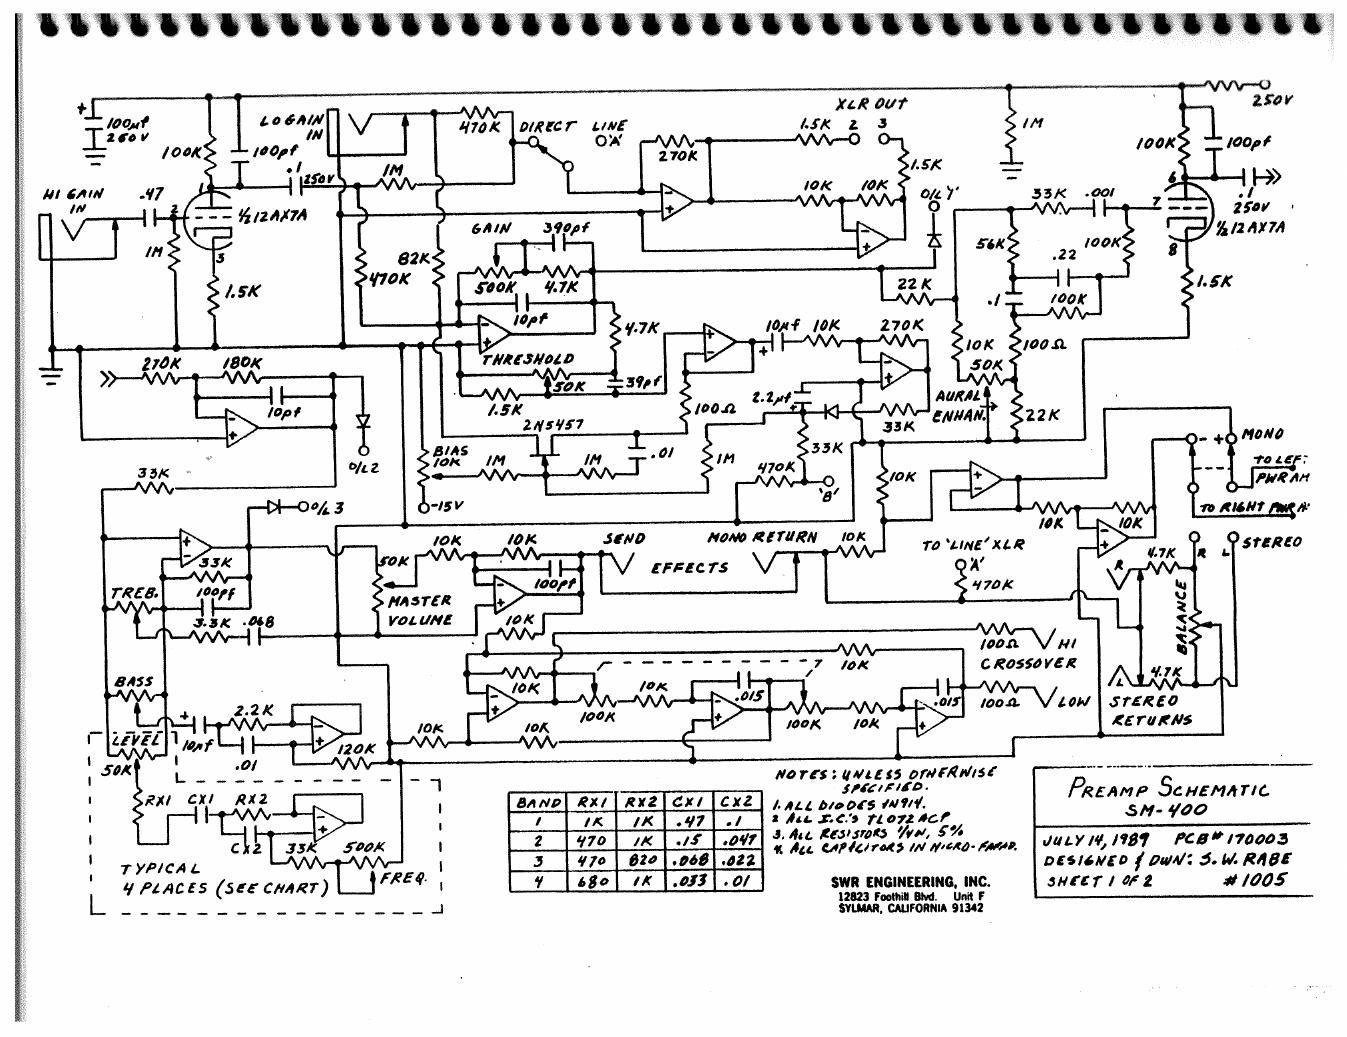 250V
+
100µf
250V
LO GAIN
IN
470K
DIRECT
LINE
'A'
XLR OUT
1.5K
2
3
1M
100K
100pf
.1
250V
1M
270K
1.5K
100K
100pf
HI GAIN
IN
.47
1
2
½ 12AX7A
3
1M
1.5K
10K
10K
O/L '1'
33K
.001
6
7
8
.1
250V
½ 12AX7A
GAIN
390pf
82K
470K
500K
4.7K
10pf
4.7K
56K
.22
100K
22K
.1
100K
1.5K
10µf
10K
270K
10K
100Ω
THRESHOLD
50K
39pf
1.5K
50K
AURAL
ENHAN.
22K
270K
180K
10pf
O/L 2
2.2µf
100Ω
33K
33K
2N5457
BIAS
10K
1M
1M
.01
1M
470K
'B'
10K
-15V
33K
MONO
TO LEFT
PWR AM
TO RIGHT PWR A
10K
10K
O/L 3
33K
100pf
TREB.
3.3K
.068
50K
MASTER
VOLUME
10K
10K
100pf
SEND
EFFECTS
MONO RETURN
10K
TO 'LINE' XLR
'A'
470K
R
L
STEREO
R
4.7K
BALANCE
L
4.7K
STEREO
RETURNS
10K
10K
10K
100Ω
HI
CROSSOVER
100K
10K
.015
100K
10K
.015
100Ω
LOW
BASS
10µf
2.2K
.01
120K
10K
10K
LEVEL
50K
RX1
CX1
RX2
CX2
33K
500K
FREQ.
TYPICAL
4 PLACES (SEE CHART)
BAND RX1 RX2 CX1 CX2
1 1K 1K .47 .1
2 470 1K .15 .047
3 470 820 .068 .022
4 680 1K .033 .01
NOTES: UNLESS OTHERWISE
SPECIFIED.
1. ALL DIODES 1N914.
2 ALL I.C.'S TL072ACP
3. ALL RESISTORS ¼W, 5%
4. ALL CAPACITORS IN MICRO-FARAD.
SWR ENGINEERING, INC.
12823 Foothill Blvd. Unit F
SYLMAR, CALIFORNIA 91342
PREAMP SCHEMATIC
SM-400
JULY 14, 1989 PCB# 170003
DESIGNED & DWN: S.W. RABE
SHEET 1 OF 2 #1005